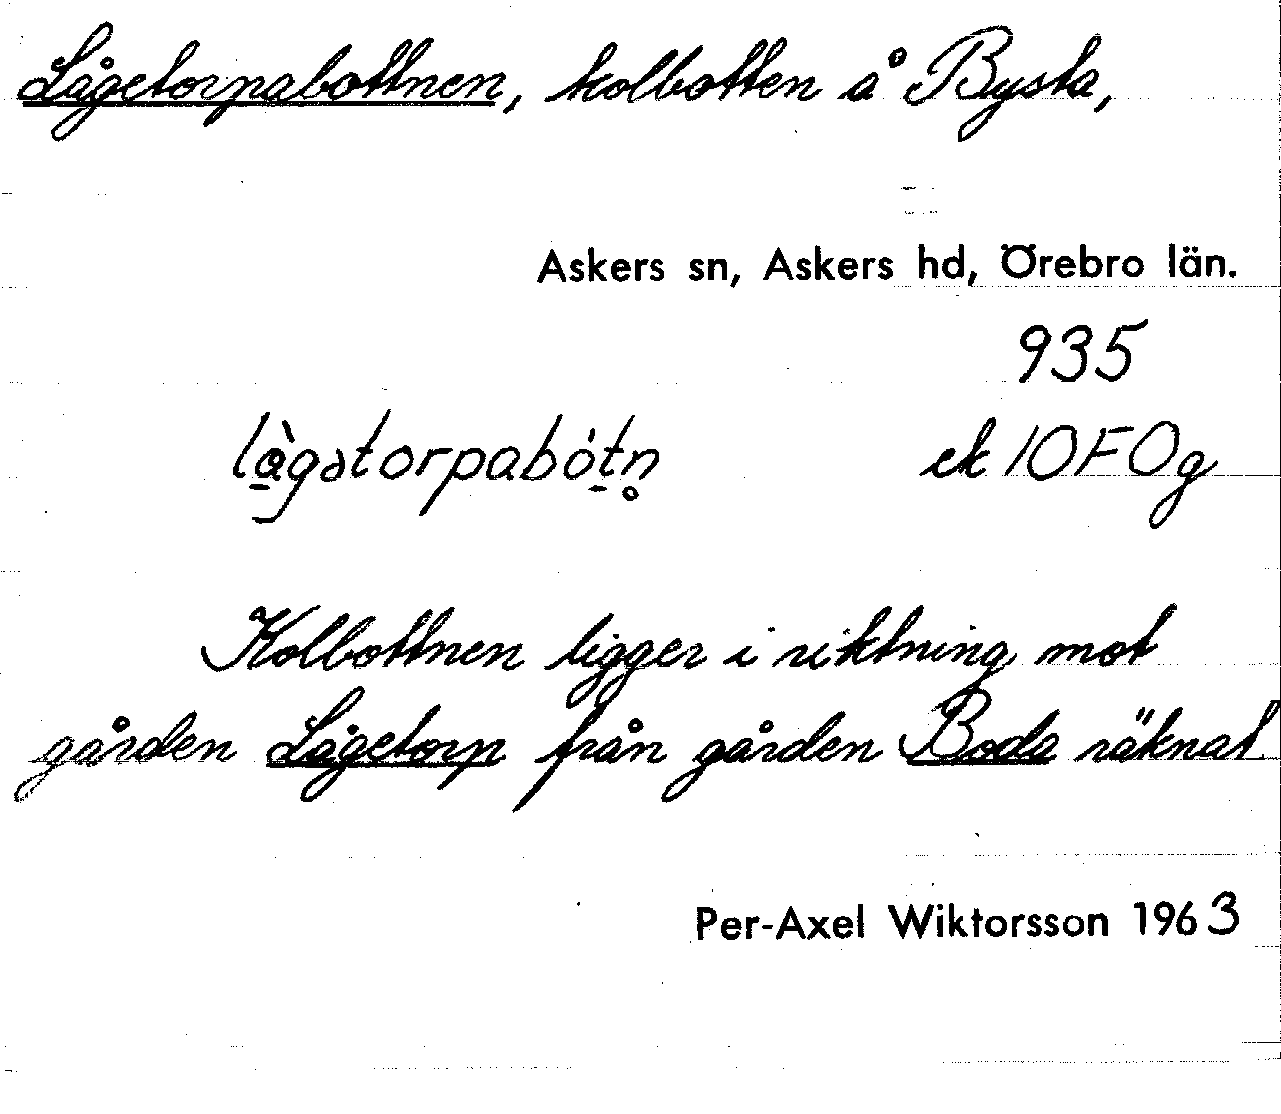 Lågetorpabottnen, kolbotten å Bysta,
Askers sn, Askers hd, Örebro län.
935
lågətorpabòtn̥ ek 10F0g
Kolbottnen ligger i riktning mot
gården Lågetorp från gården Boda räknat
Per-Axel Wiktorsson 1963